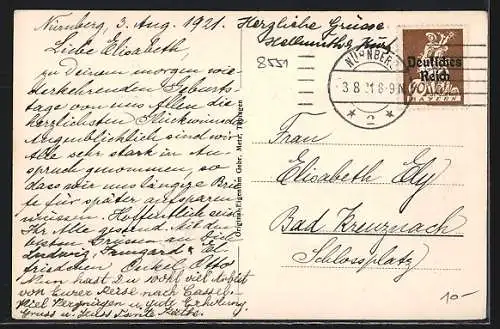 Nürnberg, 3. Aug. 1921.
Liebe Elisabeth,
zu Deinem morgen wie-
derkehrenden Geburts-
tage von uns Allen die
herzlichsten Glückwünsche
Augenblicklich sind wir
Alle sehr stark in An-
spruch genommen, so
dass wir uns längere Brie-
fe für später aufsparen
müssen. Hoffentlich seid
Ihr Alle gesund. Mit den
besten Grüssen an Dich
Ludwig, Irmgard & El
friedchen Onkel Otto
Nun hast Du wohl viel
von Eurer Reise nach Cassel.
Viel Vergnügen u. gute Erholung
Gruss u. Kuss Tante Käthe.
Herzliche Grüsse
Hellmuth & Kurt
8551
Original-Eigentum Gebr. Metz, Tübingen
NÜRNBERG
3.8.21.8-9N
2
Deutsches
Reich
BAYERN
Frau
Elisabeth Ely
Bad Kreuznach
Schlossplatz
10-